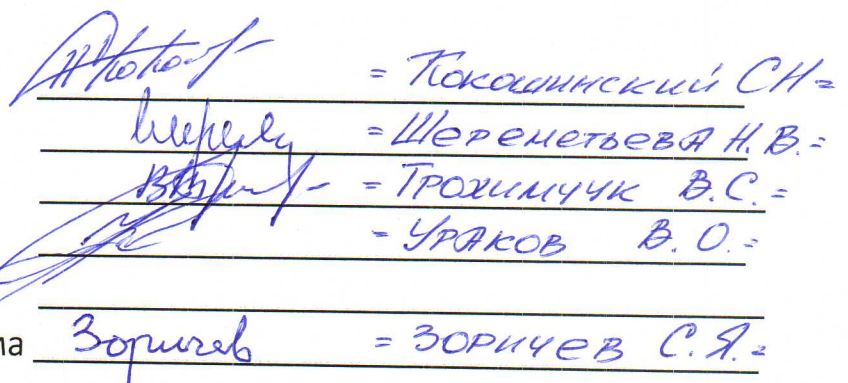 = Кокошинский СН=
= Шереметьева Н.В.=
= Трохимчук В.С.=
= Ураков В.О.=
ма Зоричев = Зоричев С.Я.=